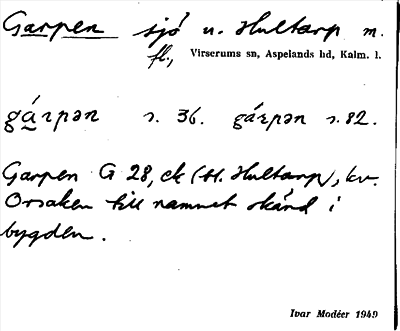 Garpen sjö u. Hultarp m.
fl., Virserums sn, Aspelands hd, Kalm. l.
gá̱rpən s. 36. gárpən s. 82.
Garpen G 28, ek (St. Hultarp), kv.
Orsaken till namnet okänd i
bygden.
Ivar Modéer 1949